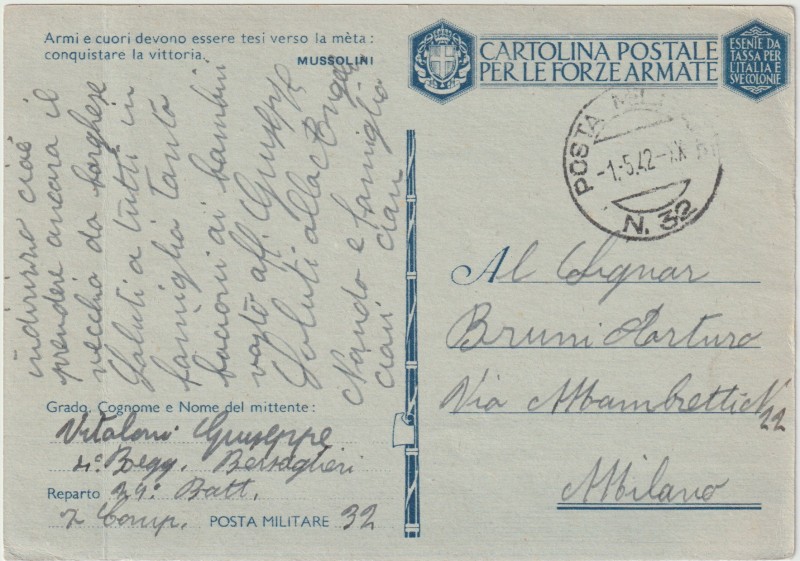 Armi e cuori devono essere tesi verso la mèta :
conquistare la vittoria.
MUSSOLINI
CARTOLINA POSTALE
PER LE FORZE ARMATE
ESENTE DA
TASSA PER
L'ITALIA E
SVE COLONIE
POSTA MIL
-1.5.42-XX
N. 32
indirizzo cioè
prendere ancora il
vecchio da borghese
Saluti a tutti in
famiglia tanto
bacioni ai bambini
vostro aff. Giuseppe
Saluti alla
Nando e famiglia
ciau ciau
Al Signor
Bruni Arturo
Via Mambretti N
22
Milano
Grado, Cognome e Nome del mittente :
Vitaloni Giuseppe
4º Begg. Bersaglieri
Reparto 29º Batt.
7 Comp. POSTA MILITARE 32